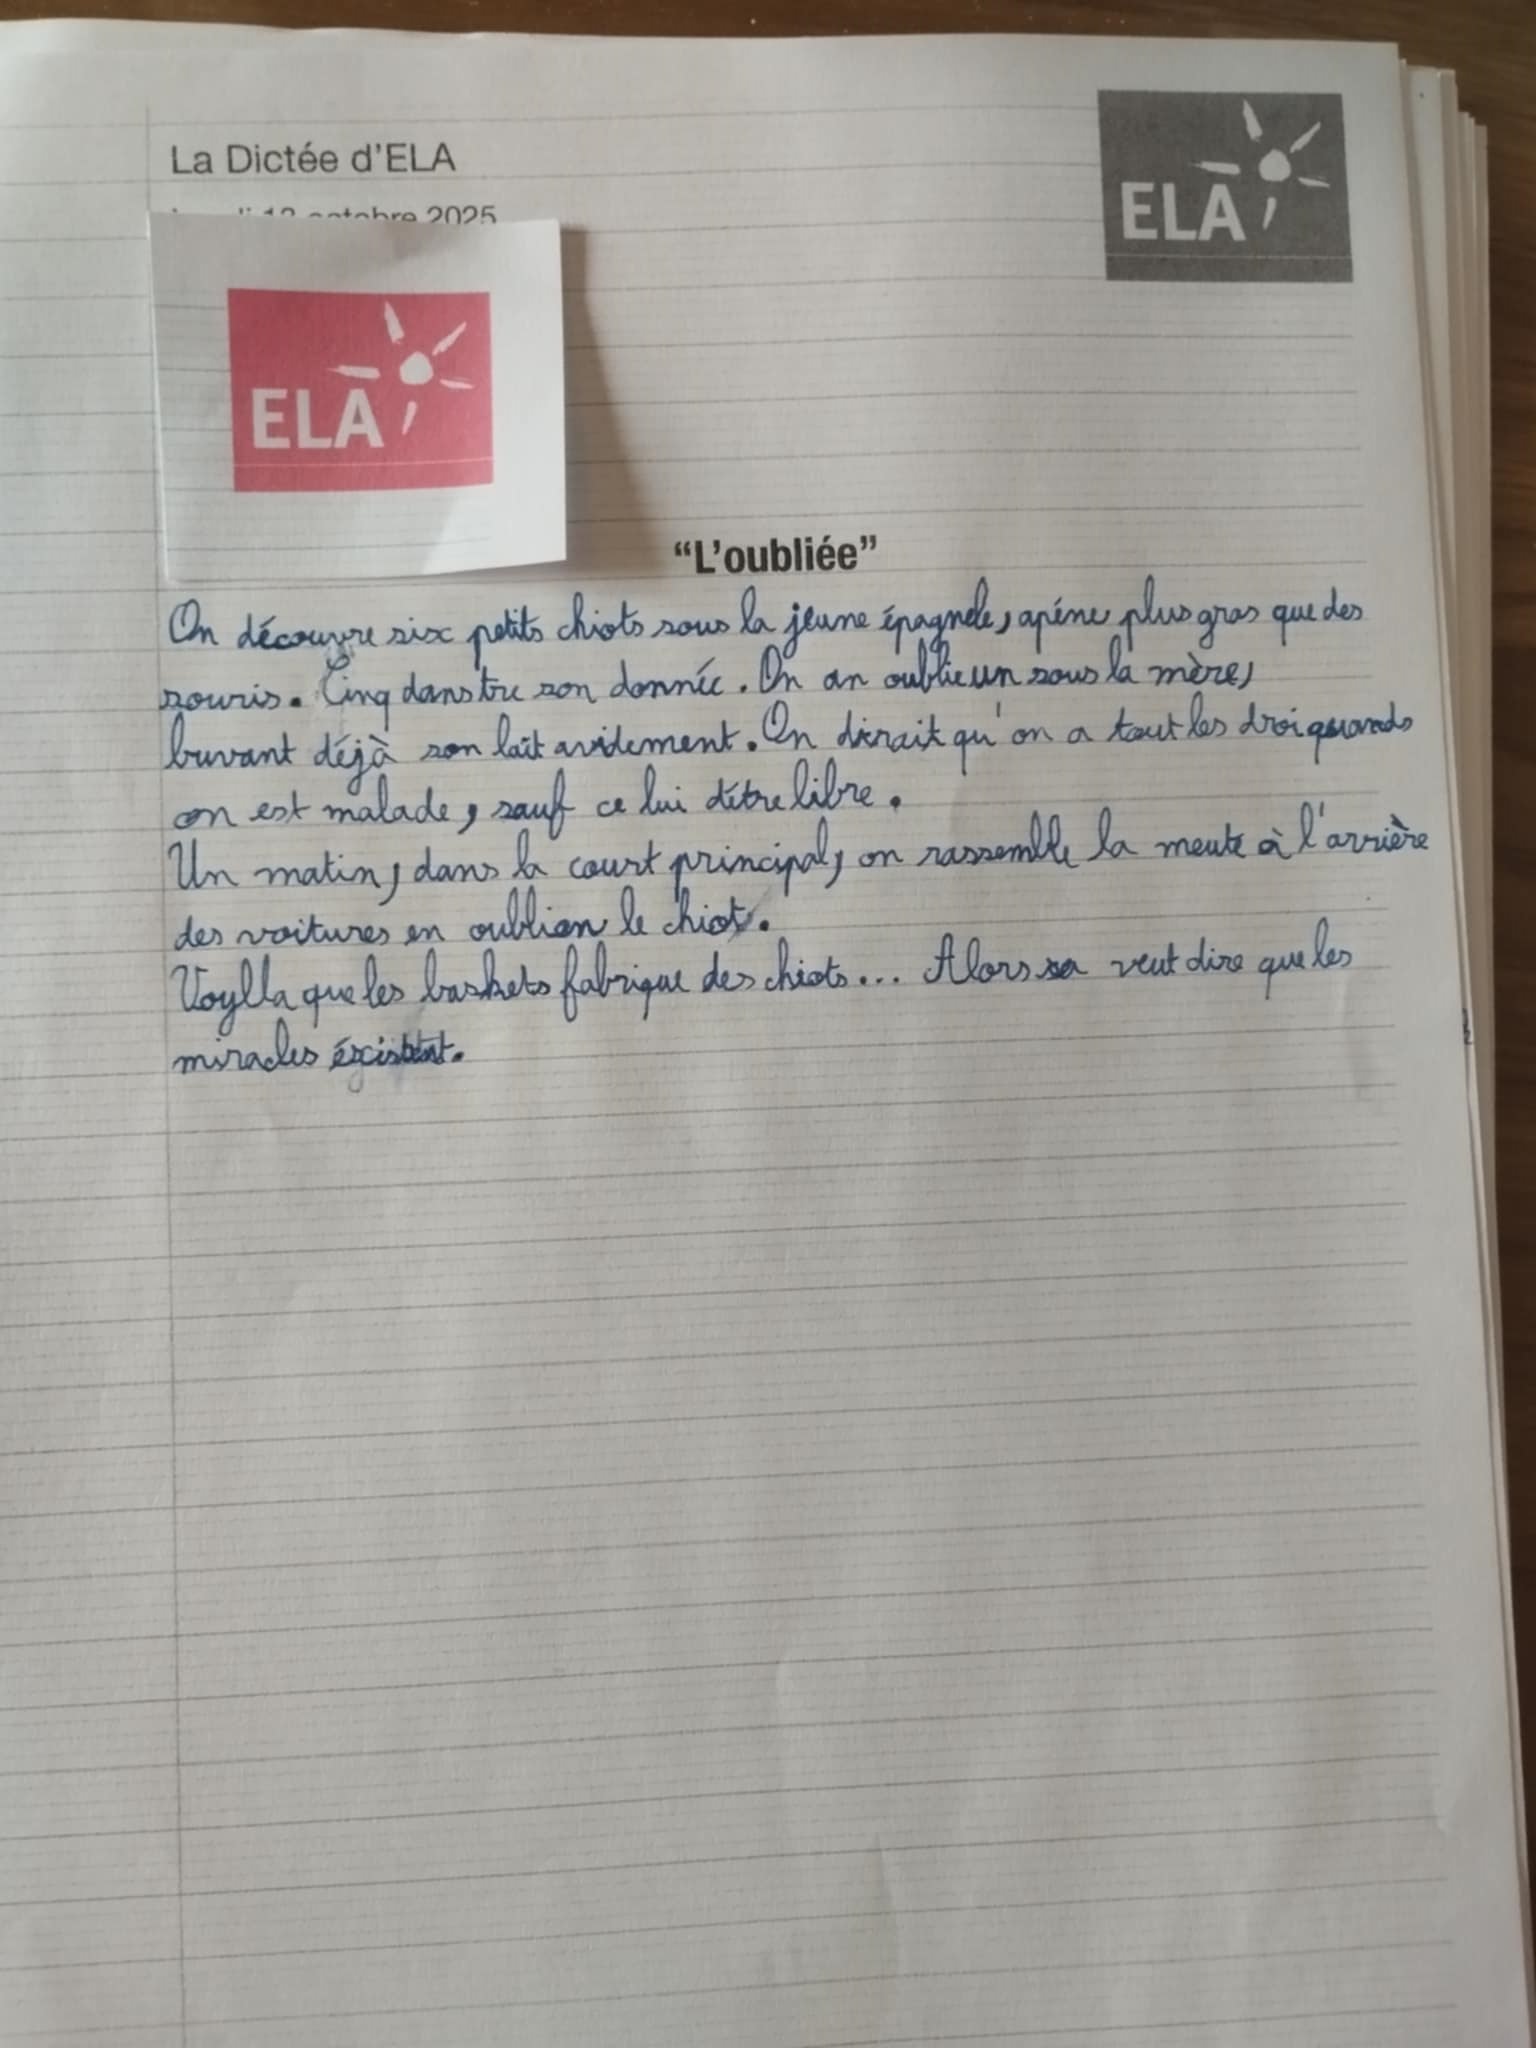 La Dictée d'ELA
13 octobre 2025
ELA
ELA
“L'oubliée”
On découvre six petits chiots sous la jeune épagnele, apéne plus gras que des
souris. Cinq dans tre son donnée. On an oublie un sous la mère,
buvant déjà son lait avidement. On dirait qu'on a tout les droi quands
on est malade, sauf ce lui d'être libre.
Un matin, dans la court principal, on rassemble la meute à l'arrière
des voitures en oublian le chiot.
Voylla que les baskets fabrique des chiots... Alors sa veut dire que les
miracles éxistent.